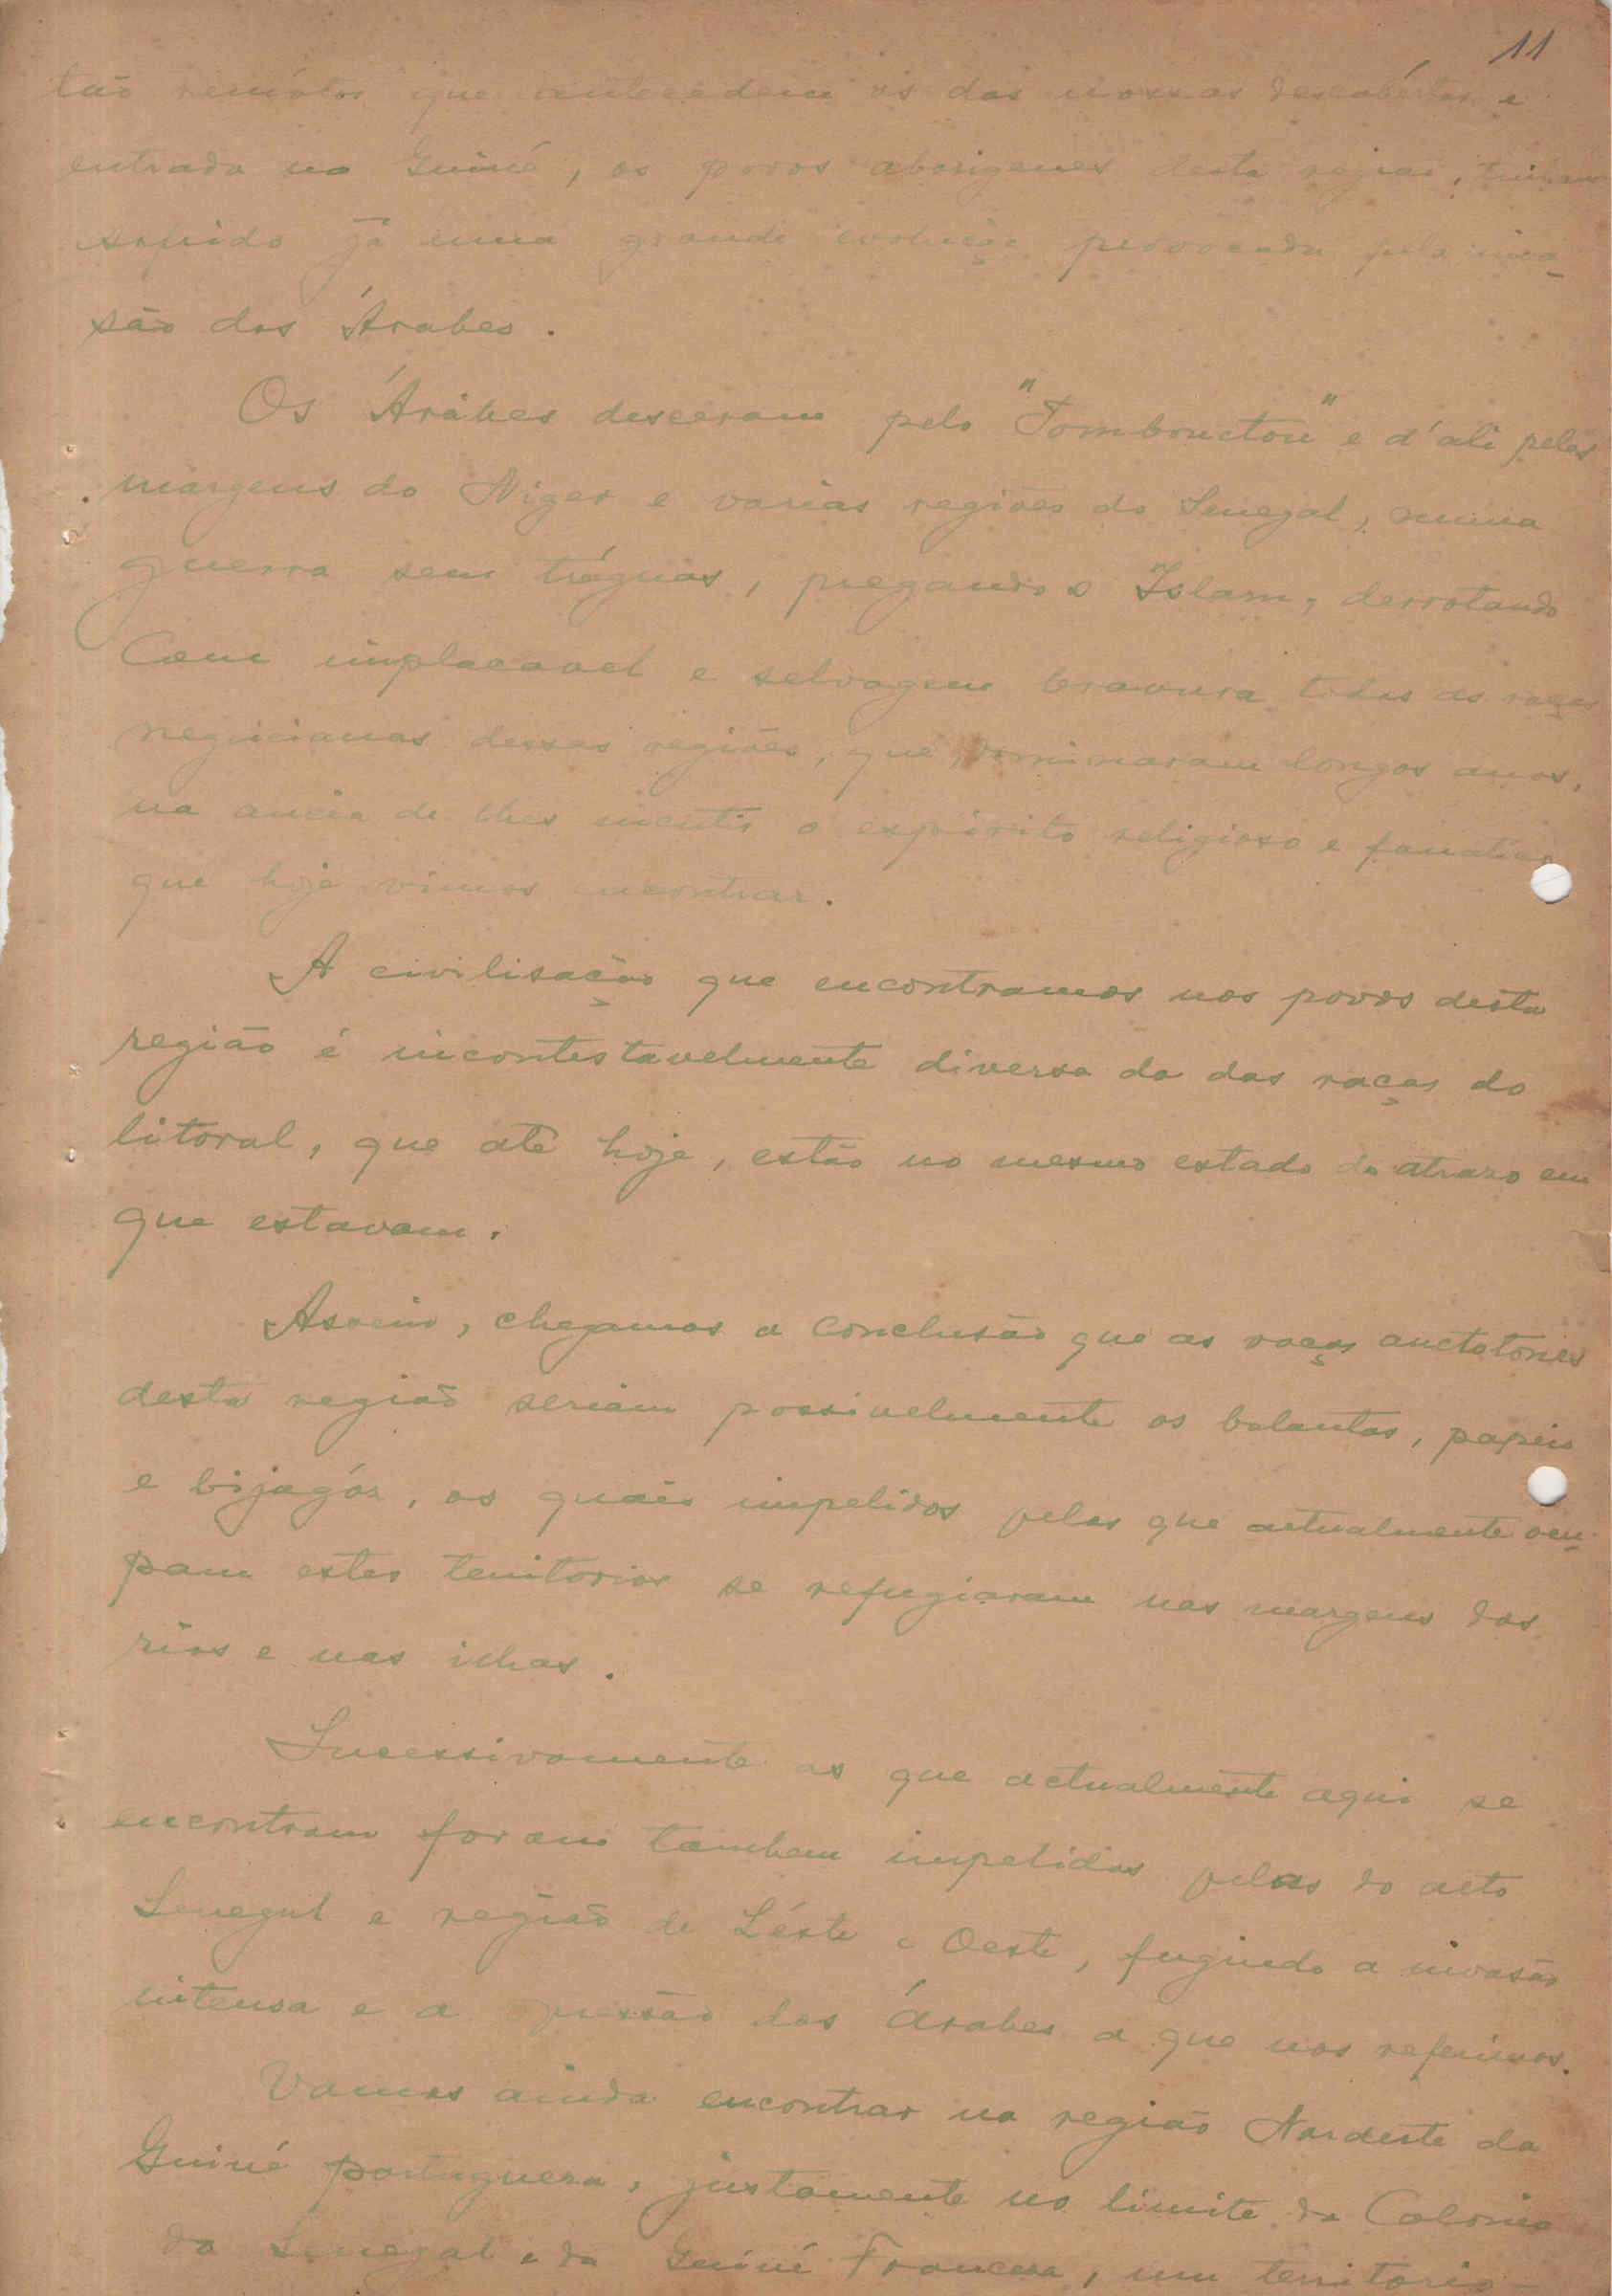 11
tão remótos que antecedem os das nossas descobértas e
entrada na Guiné, os povos aborigenes desta região, tinham
sofrido já uma grande evolução provocada pela inva-
são dos Árabes.
Os Árabes desceram pelo "Tombouctou" e d'ali pelas
margens do Niger e varias regiões do Senegal, numa
guerra sem tréguas, pregando o Islam, derrotando
Com implacavel e selvagem bravura todas as raças
negricianas dessas regiões, que dominaram longos anos,
na ancia de lhes incutir o espirito religioso e fanatico
que hoje vimos encontrar.
A civilisação que encontramos nos povos desta
região é incontestavelmente diversa da das raças do
litoral, que até hoje, estão no mesmo estado de atrazo em
que estavam.
Assim, chegamos a conclusão que as raças auctotones
desta região seriam possivelmente os balantas, papeis
e bijagós, os quais impelidos pelas que actualmente ocu-
pam estes territorios se refugiaram nas margens dos
rios e nas ilhas.
Sucessivamente as que actualmente aqui se
encontram foram tambem impelidas pelas do alto
Senegal e região de Léste e Oeste, fugindo a invasão
intensa e a opressão dos árabes a que nos referimos.
Vamos ainda encontrar na região Nordeste da
Guiné portugueza, justamente no limite da Colonia
do Senegal e da Guiné Franceza, um territorio